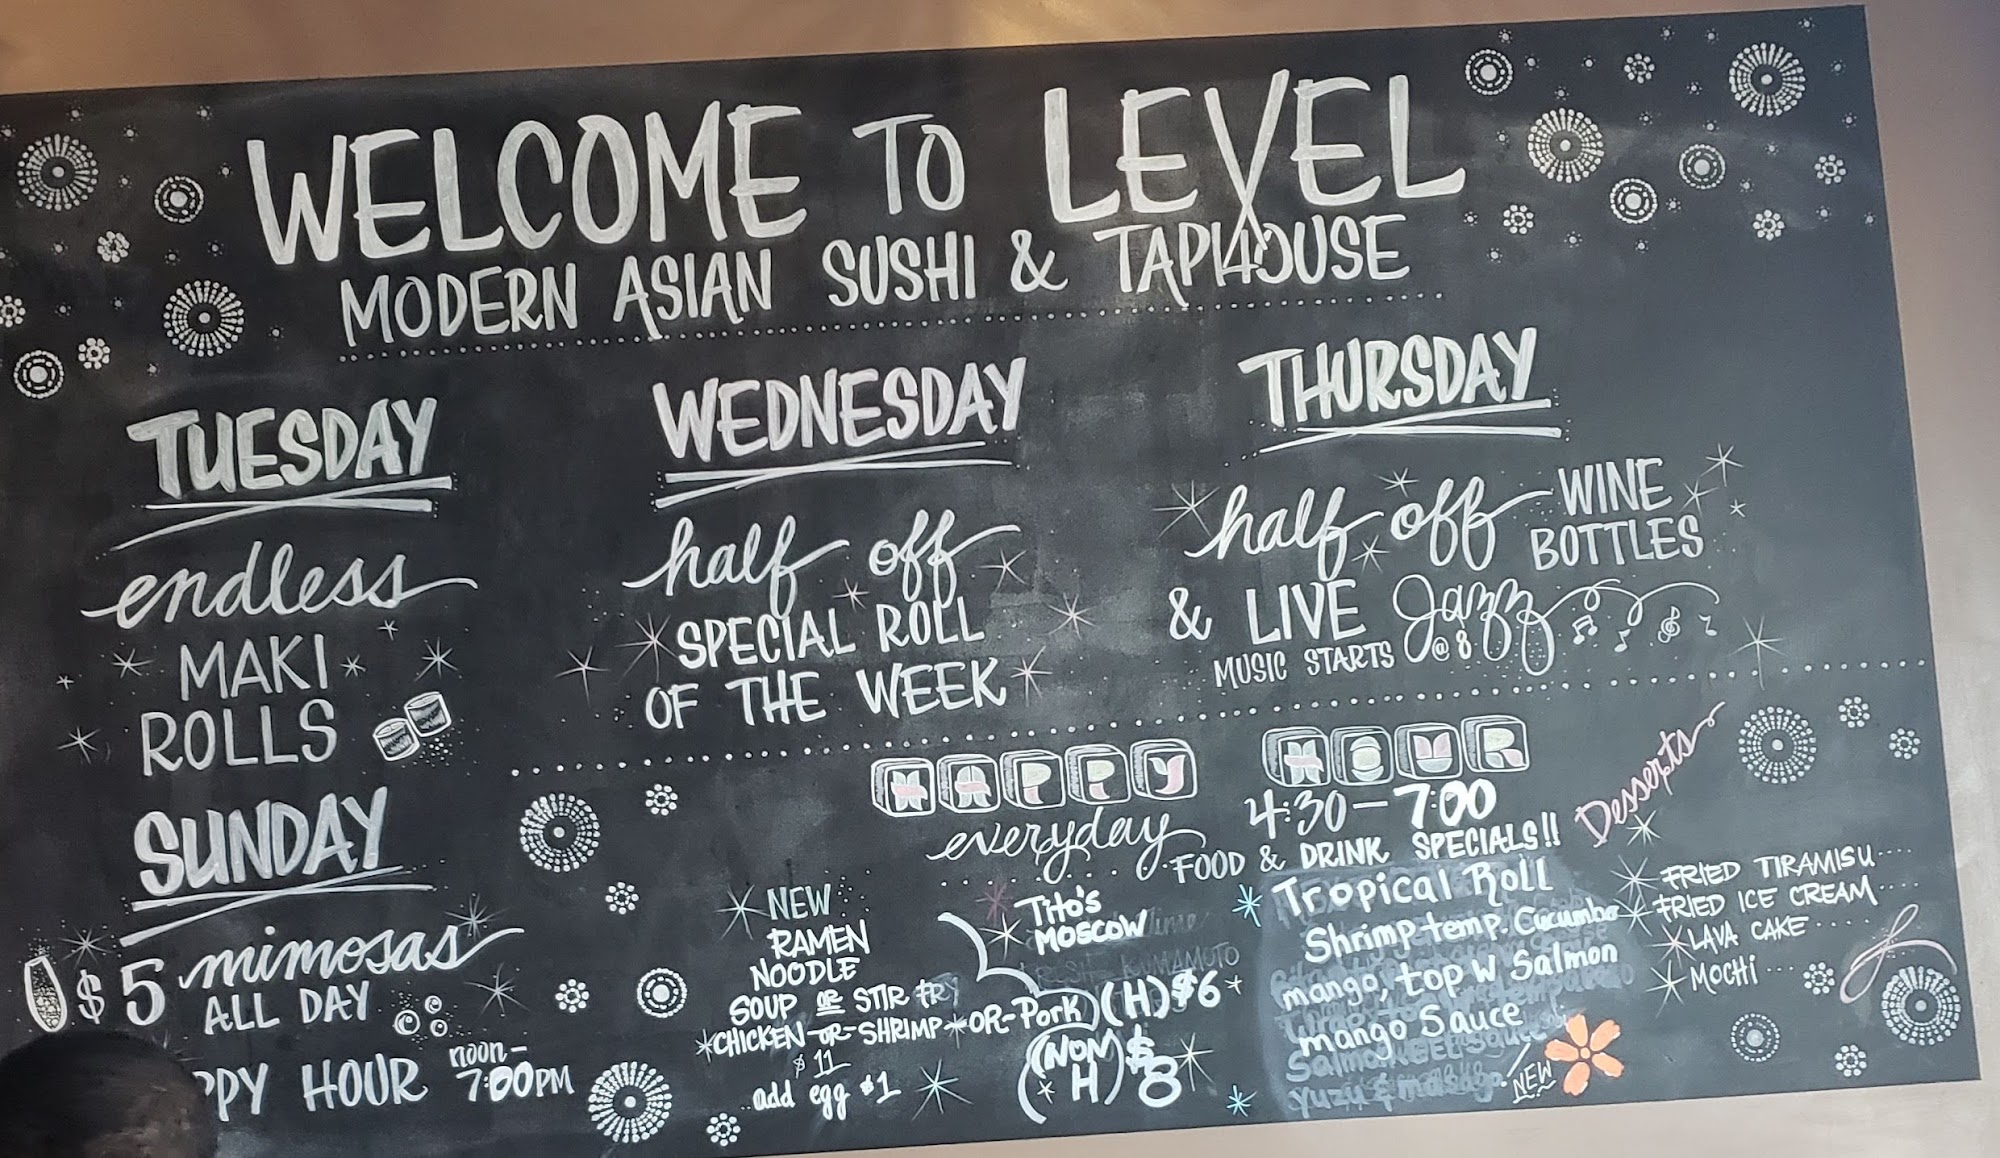 WELCOME TO LEVEL
MODERN ASIAN SUSHI & TAPHOUSE
TUESDAY
endless
MAKI
ROLLS
WEDNESDAY
half off
SPECIAL ROLL
OF THE WEEK
THURSDAY
half off WINE
BOTTLES
& LIVE Jazz
MUSIC STARTS @ 8
SUNDAY
$5 mimosas
ALL DAY
PPY HOUR noon-
7:00PM
HAPPY HOUR
everyday 4:30-7:00
FOOD & DRINK SPECIALS!!
NEW
RAMEN
NOODLE
SOUP OR STIR FRY
CHICKEN-OR-SHRIMP-OR-Pork
$11
add egg $1
Tito's
Moscow
(H) $6
(NON
H) $8
Tropical Roll
Shrimp temp. Cucumber
mango, top W Salmon
mango Sauce
NEW
Desserts
FRIED TIRAMISU....
FRIED ICE CREAM....
LAVA CAKE...
MOCHI....